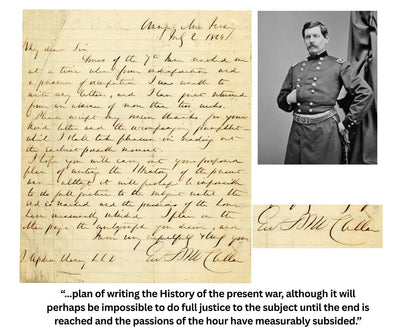 July 2 1864
My dear Sir
Yours of the 7th has reached me
at a time when from indisposition and
a pressure of occupation I was unable to
write any letters, and I have just returned
from an absence of more than two weeks.
Please accept my thanks for your
kind letter and the accompanying pamphlet
which I shall take pleasure in reading at
the earliest possible moment.
I hope you will carry out your proposed
plan of writing the History of the present
war altho' it will perhaps be impossible
to do full justice to the subject until the
end is reached and the passions of the hour
have measurably subsided. I place on the
other page the autograph you desire, and
am very respectfully & truly yours
Geo B McClellan
Geo B McClellan
“...plan of writing the History of the present war, although it will
perhaps be impossible to do full justice to the subject until the end is
reached and the passions of the hour have measurably subsided.”